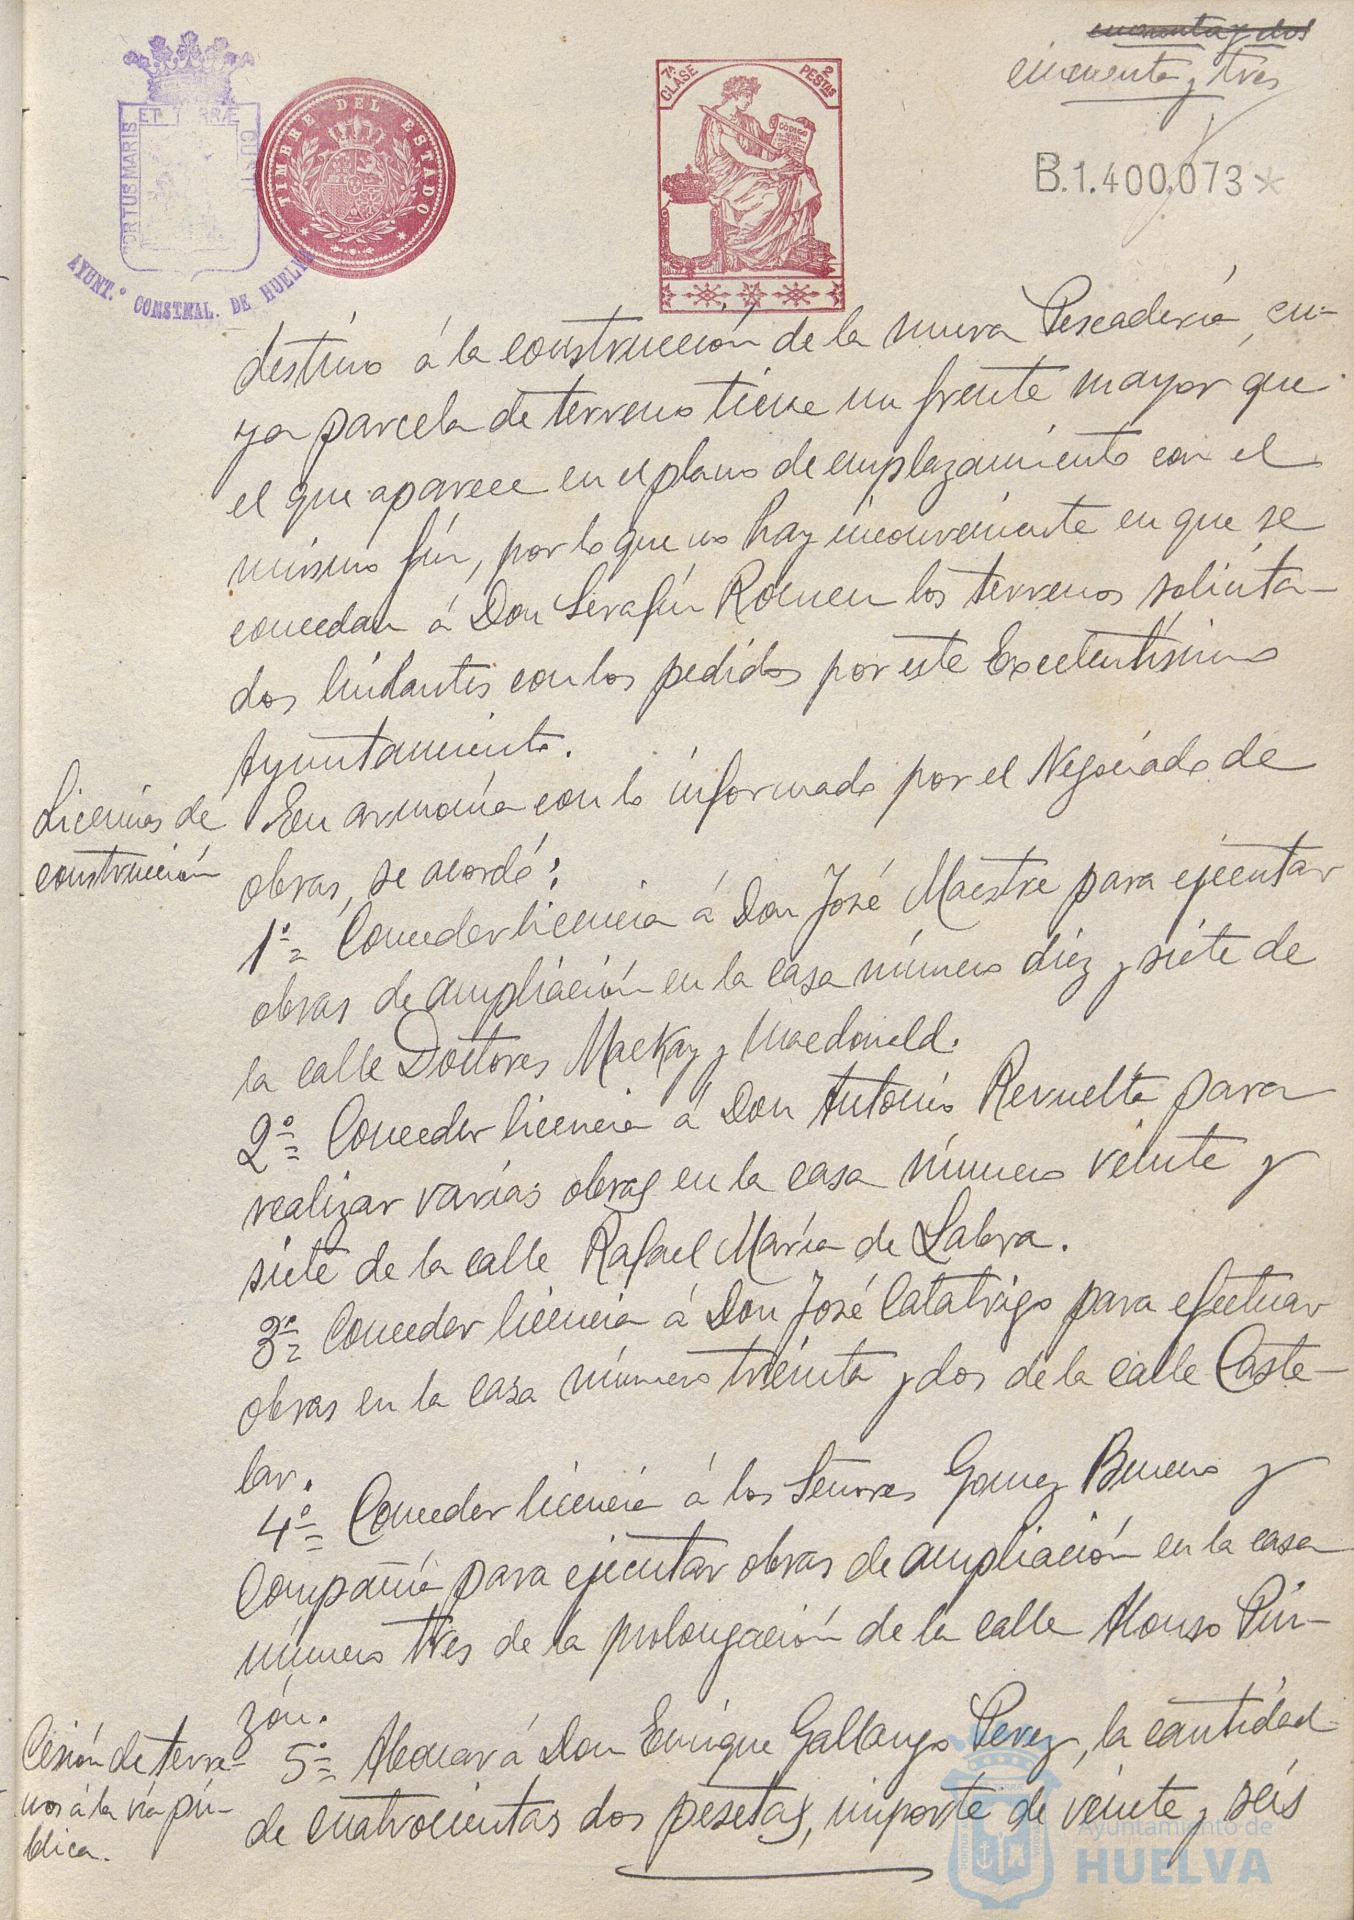 cuarenta y dos
cincuenta y tres
PORTUS MARIS
ET TERRÆ
CUSTO
AYUNT.º CONSTNAL. DE HUELVA
TIMBRE DEL ESTADO
7ª CLASE
2 PESTAS
CÓDIGO
B.1.400.073*
destino á la construcción de la nueva Pescadería, cu-
ya parcela de terreno tiene un frente mayor que
el que aparece en el plano de emplazamiento con el
mismo fín, por lo que no hay inconveniente en que se
concedan á Don Serafín Romeu los terrenos solicita-
dos lindantes con los pedidos por este Excelentísimo
Ayuntamiento.
Licencias de
construcción
En armonía con lo informado por el Negociado de
obras, se acordó:
1º= Conceder licencia á Don José Maestre para ejecutar
obras de ampliación en la casa número diez y siete de
la calle Doctores Mackay y Macdonald.
2º= Conceder licencia á Don Antonio Revuelta para
realizar varias obras en la casa número veinte y
siete de la calle Rafael María de Labra.
3º= Conceder licencia á Don José Catatrigo para efectuar
obras en la casa número treinta y dos de la calle Caste-
lar.
4º= Conceder licencia á los Señores Gomez Bueno y
Compañía para ejecutar obras de ampliación en la casa
número tres de la prolongación de la calle Alonso Pin-
zón.
Cesión de terre-
nos á la vía pú-
blica.
5º= Abonar á Don Enrique Gallango Perez, la cantidad
de cuatrocientas dos pesetas, importe de veinte y seis
Ayuntamiento de
HUELVA